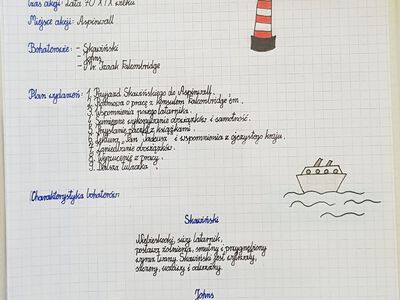 Czas akcji: Lata 70 XIX wieku
Miejsce akcji: Aspinwall
Bohaterowie: - Skawiński
- Johns
- Pr. Izaak Falcombridge
Plan wydarzeń: 1. Przyjazd Skawińskiego do Aspinwall.
2. Rozmowa o pracę z konsulem Falcombridge'em.
3. Wspomnienia nowego latarnika.
4. Sumienne wykonywanie obowiązków i samotność.
5. Przysłanie paczki z książkami.
6. Lektura "Pan Tadeusz" i wspomnienia z ojczystego kraju.
7. Zaniedbanie obowiązków.
8. Wyrzucenie z pracy.
9. Dalsza tułaczka.
Charakterystyka bohaterów:
Skawiński
Niebieskooki, siwy latarnik,
postawny żołnierza, smutny i przygnębiony
wyraz twarzy. Skawiński jest wytrwały,
stary, uczciwy i odważny.
Johns